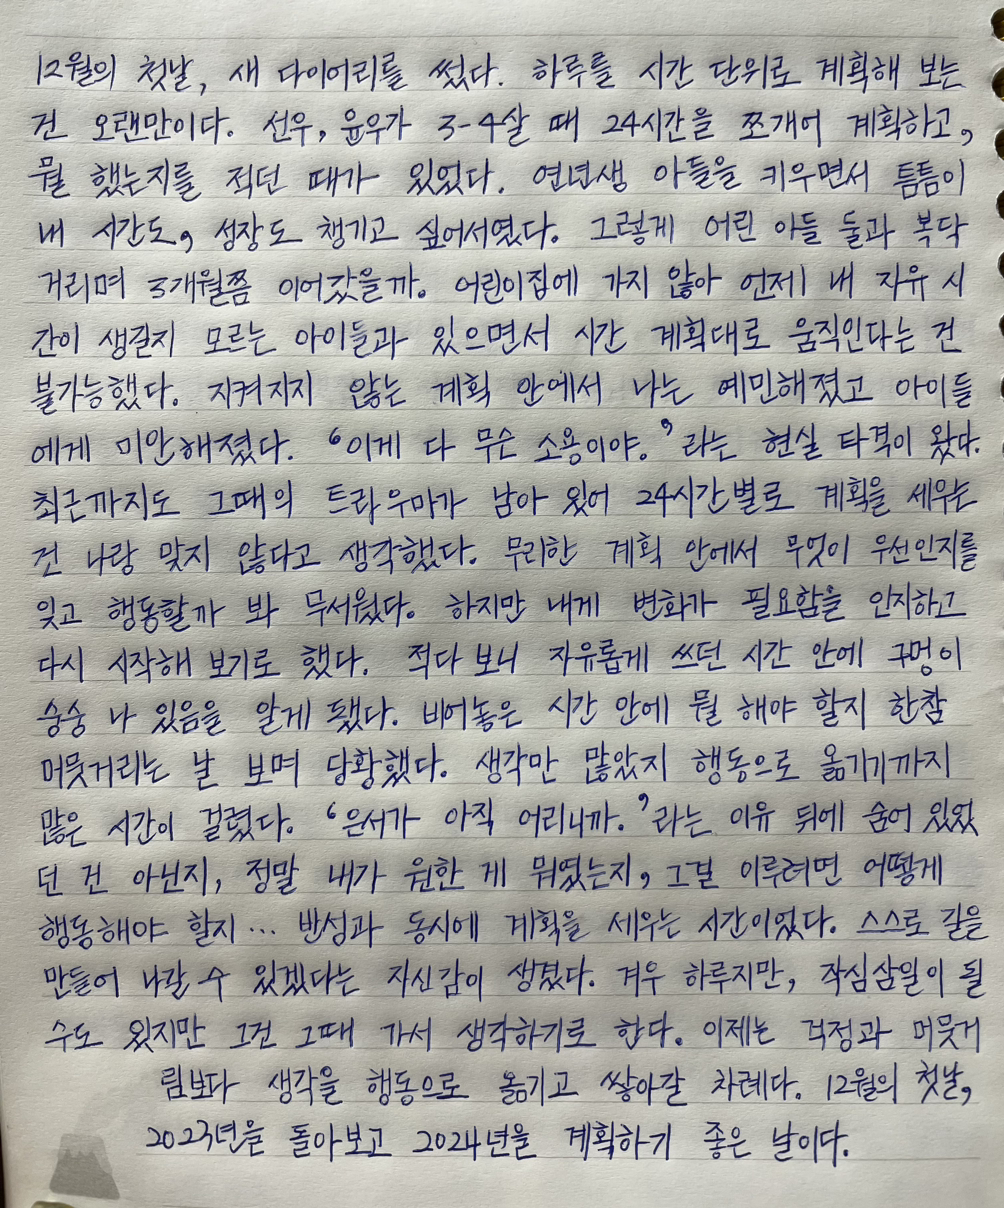 12월의 첫날, 새 다이어리를 썼다. 하루를 시간 단위로 계획해 보는
건 오랜만이다. 선우, 윤우가 3-4살 때 24시간을 쪼개어 계획하고,
뭘 했는지를 적던 때가 있었다. 연년생 아들을 키우면서 틈틈이
내 시간도, 성장도 챙기고 싶어서였다. 그렇게 어린 아들 둘과 복닥
거리며 3개월쯤 이어갔을까. 어린이집에 가지 않아 언제 내 자유 시
간이 생길지 모르는 아이들과 있으면서 시간 계획대로 움직인다는 건
불가능했다. 지켜지지 않는 계획 안에서 나는 예민해졌고 아이들
에게 미안해졌다. ‘이게 다 무슨 소용이야.’라는 현실 타격이 왔다.
최근까지도 그때의 트라우마가 남아 있어 24시간별로 계획을 세우는
건 나랑 맞지 않다고 생각했다. 무리한 계획 안에서 무엇이 우선인지를
잊고 행동할까 봐 무서웠다. 하지만 내게 변화가 필요함을 인지하고
다시 시작해 보기로 했다. 적다 보니 자유롭게 쓰던 시간 안에 구멍이
숭숭 나 있음을 알게 됐다. 비어놓은 시간 안에 뭘 해야 할지 한참
머뭇거리는 날 보며 당황했다. 생각만 많았지 행동으로 옮기기까지
많은 시간이 걸렸다. ‘은서가 아직 어리니까.’라는 이유 뒤에 숨어 있었
던 건 아닌지, 정말 내가 원한 게 뭐였는지, 그걸 이루려면 어떻게
행동해야 할지... 반성과 동시에 계획을 세우는 시간이었다. 스스로 길을
만들어 나갈 수 있겠다는 자신감이 생겼다. 겨우 하루지만, 작심삼일이 될
수도 있지만 그건 그때 가서 생각하기로 한다. 이제는 걱정과 머뭇거
림보다 생각을 행동으로 옮기고 쌓아갈 차례다. 12월의 첫날,
2023년을 돌아보고 2024년을 계획하기 좋은 날이다.